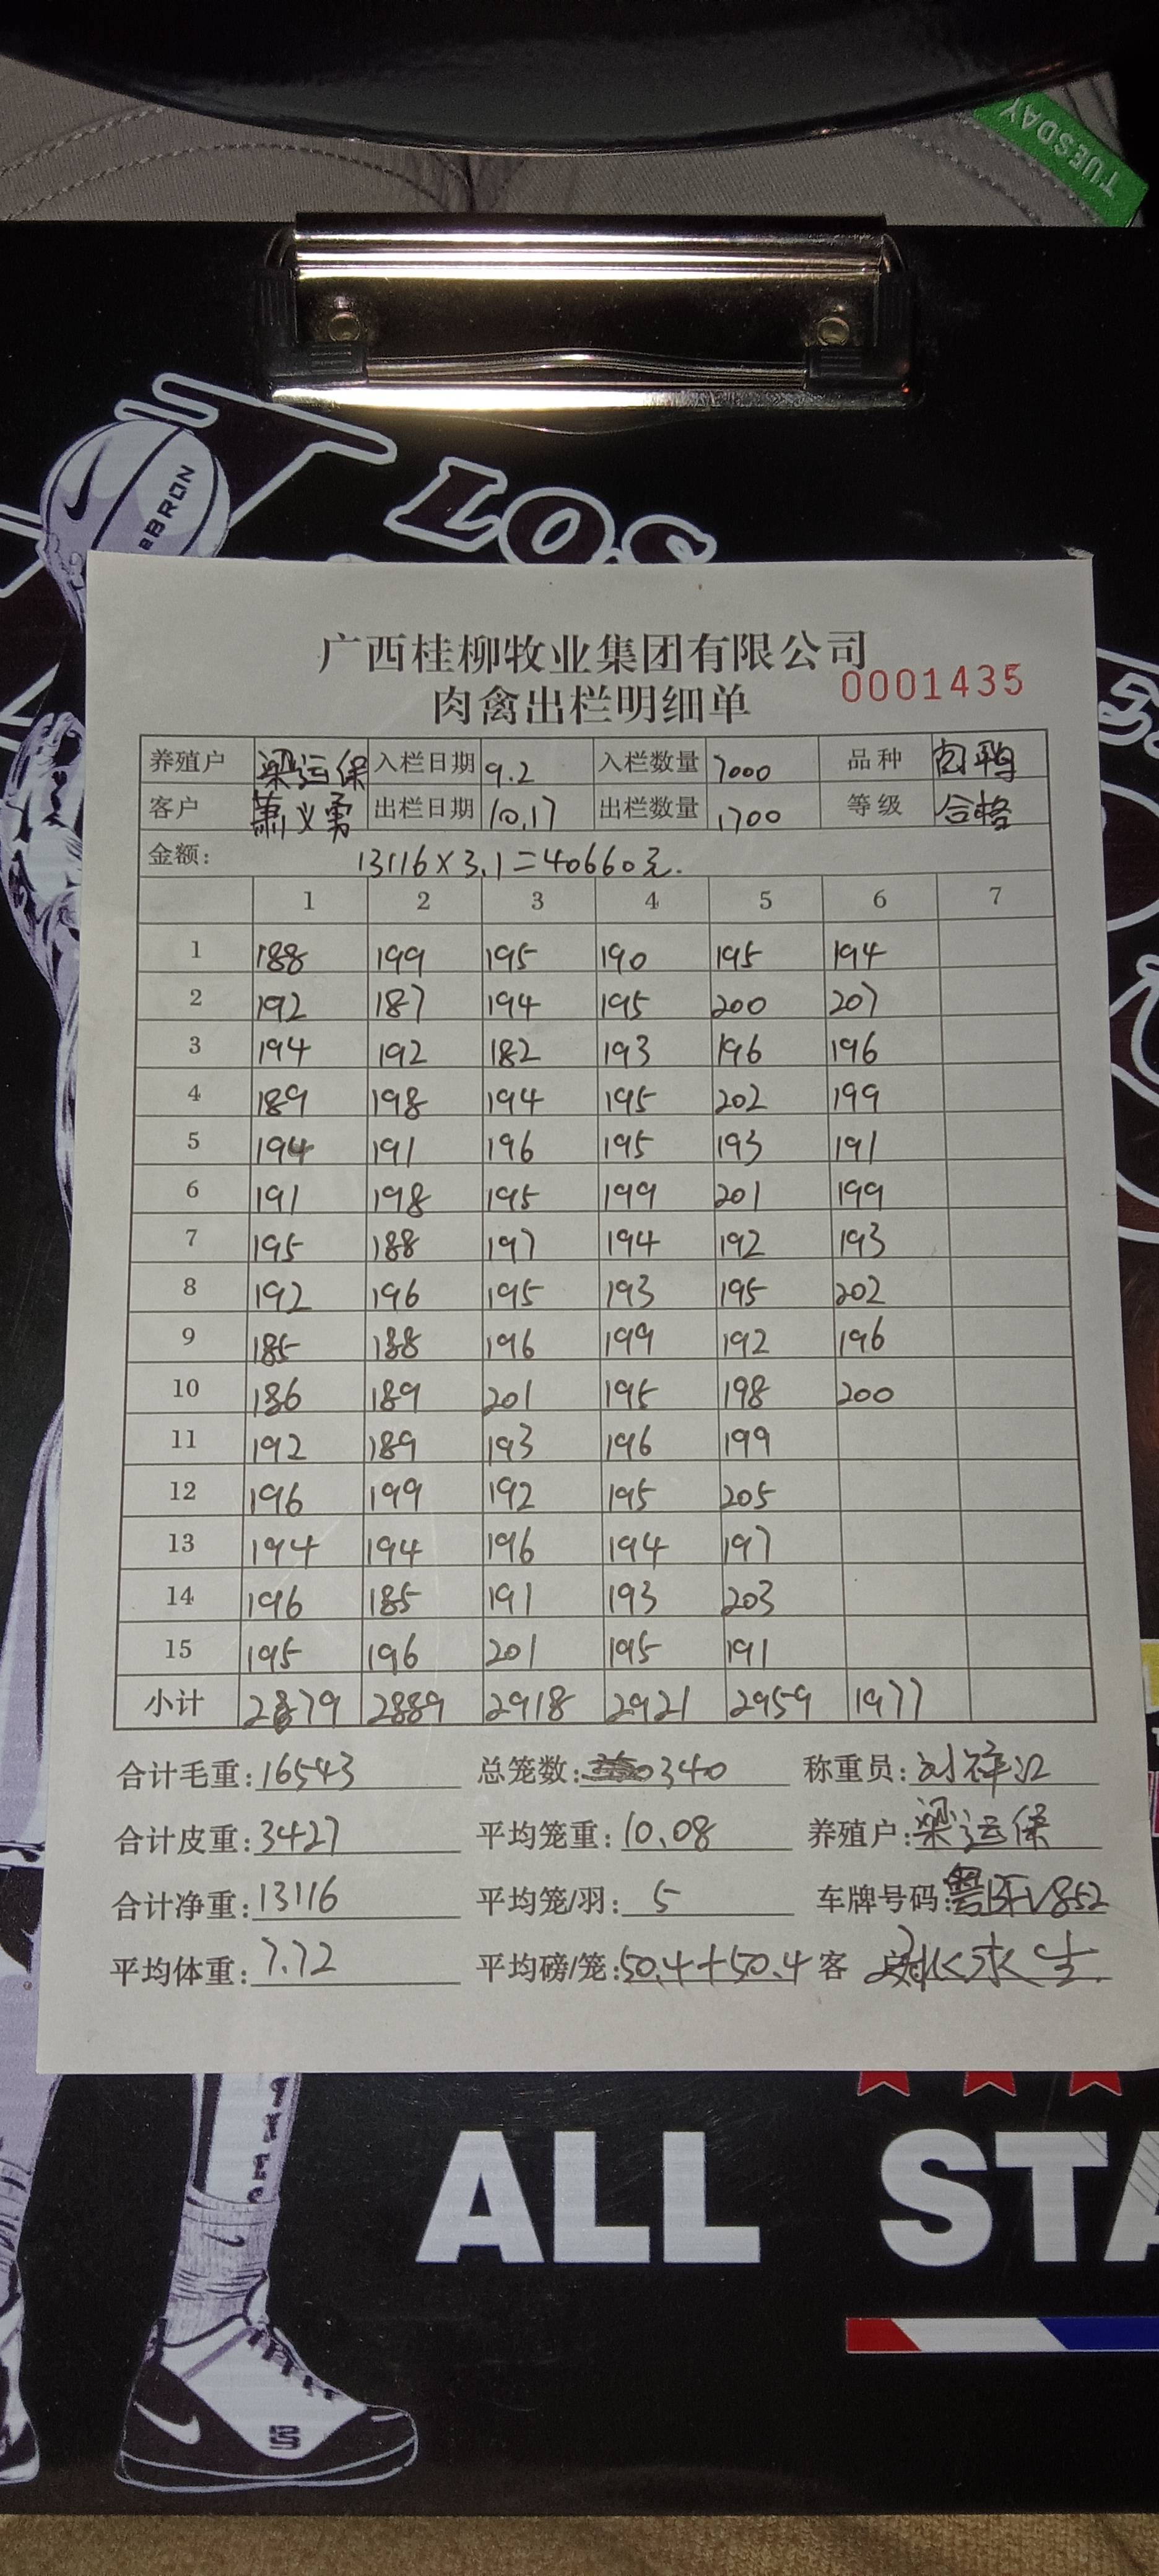 TUESDAY
BRON
LOS
广西桂柳牧业集团有限公司
肉禽出栏明细单 0001435
养殖户 梁运保 入栏日期 9.2 入栏数量 7000 品种 肉鸭
客户 萧义勇 出栏日期 10.17 出栏数量 1700 等级 合格
金额: 13116×3.1=40660元.
1 2 3 4 5 6 7
1 188 199 195 190 195 194
2 192 187 194 195 200 207
3 194 192 182 193 196 196
4 189 198 194 195 202 199
5 194 191 196 195 193 191
6 191 198 195 199 201 199
7 195 188 197 194 192 193
8 192 196 195 193 195 202
9 185 188 196 199 192 196
10 186 189 201 195 198 200
11 192 189 193 196 199
12 196 199 192 195 205
13 194 194 196 194 197
14 196 185 191 193 203
15 195 196 201 195 191
小计 2879 2889 2918 2921 2959 1977
合计毛重: 16543 总笼数: 340 称重员:
合计皮重: 3427 平均笼重: 10.08 养殖户: 梁运保
合计净重: 13116 平均笼/羽: 5 车牌号码:
平均体重: 7.72 平均磅/笼: 50.4+50.4 客户
ALL STA